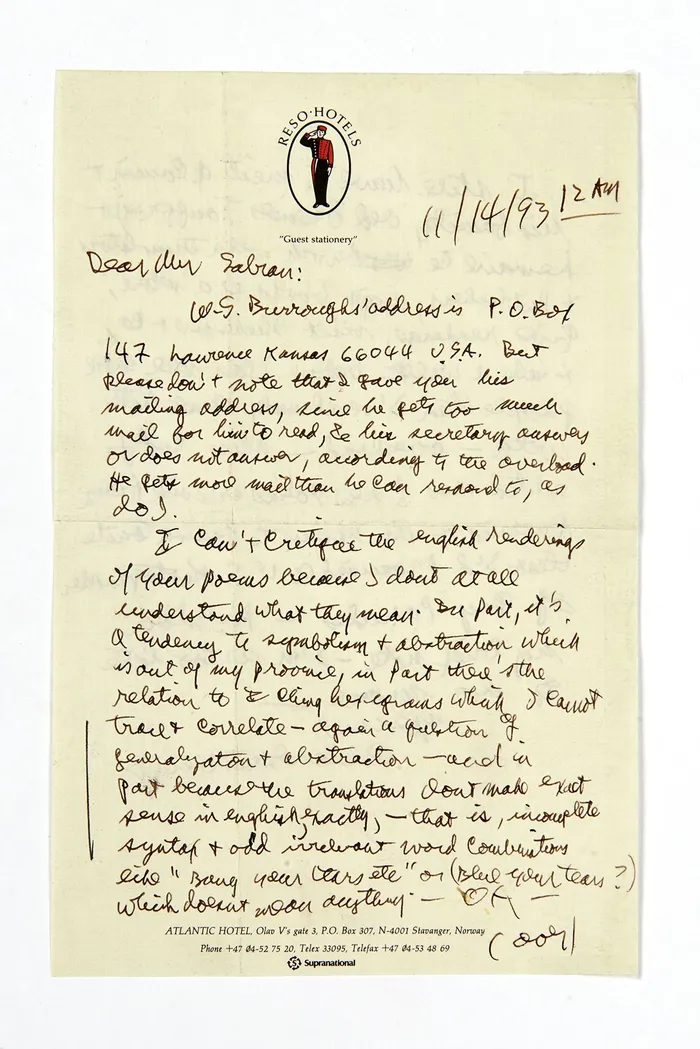 RESO·HOTELS
"Guest stationery"
11/14/93 12 AM
Dear Mr Sabran:
W.S. Burroughs' address is P.O. Box
147 Lawrence Kansas 66044 U.S.A. But
please don't note that I gave you his
mailing address, since he gets too much
mail for him to read, & his secretary answers
or does not answer, according to the overload.
He gets more mail than he can respond to, as
do I.
I can't critique the english renderings
of your poems because I dont at all
understand what they mean. In part, it's
a tendency to symbolism & abstraction which
is out of my province, in part there's the
relation to I Ching hexegrams which I cannot
trace & correlate — again a question of
generalization & abstraction — and in
part because the translations dont make exact
sense in english, exactly, — that is, incomplete
syntax & odd irrelevant word combinations
like "Bang your ears etc" or (Blue your tears?)
which doesnt mean anything. — OK —
(over)
ATLANTIC HOTEL, Olav V's gate 3, P.O. Box 307, N-4001 Stavanger, Norway
Phone +47 04-52 75 20, Telex 33095, Telefax +47 04-53 48 69
Supranational